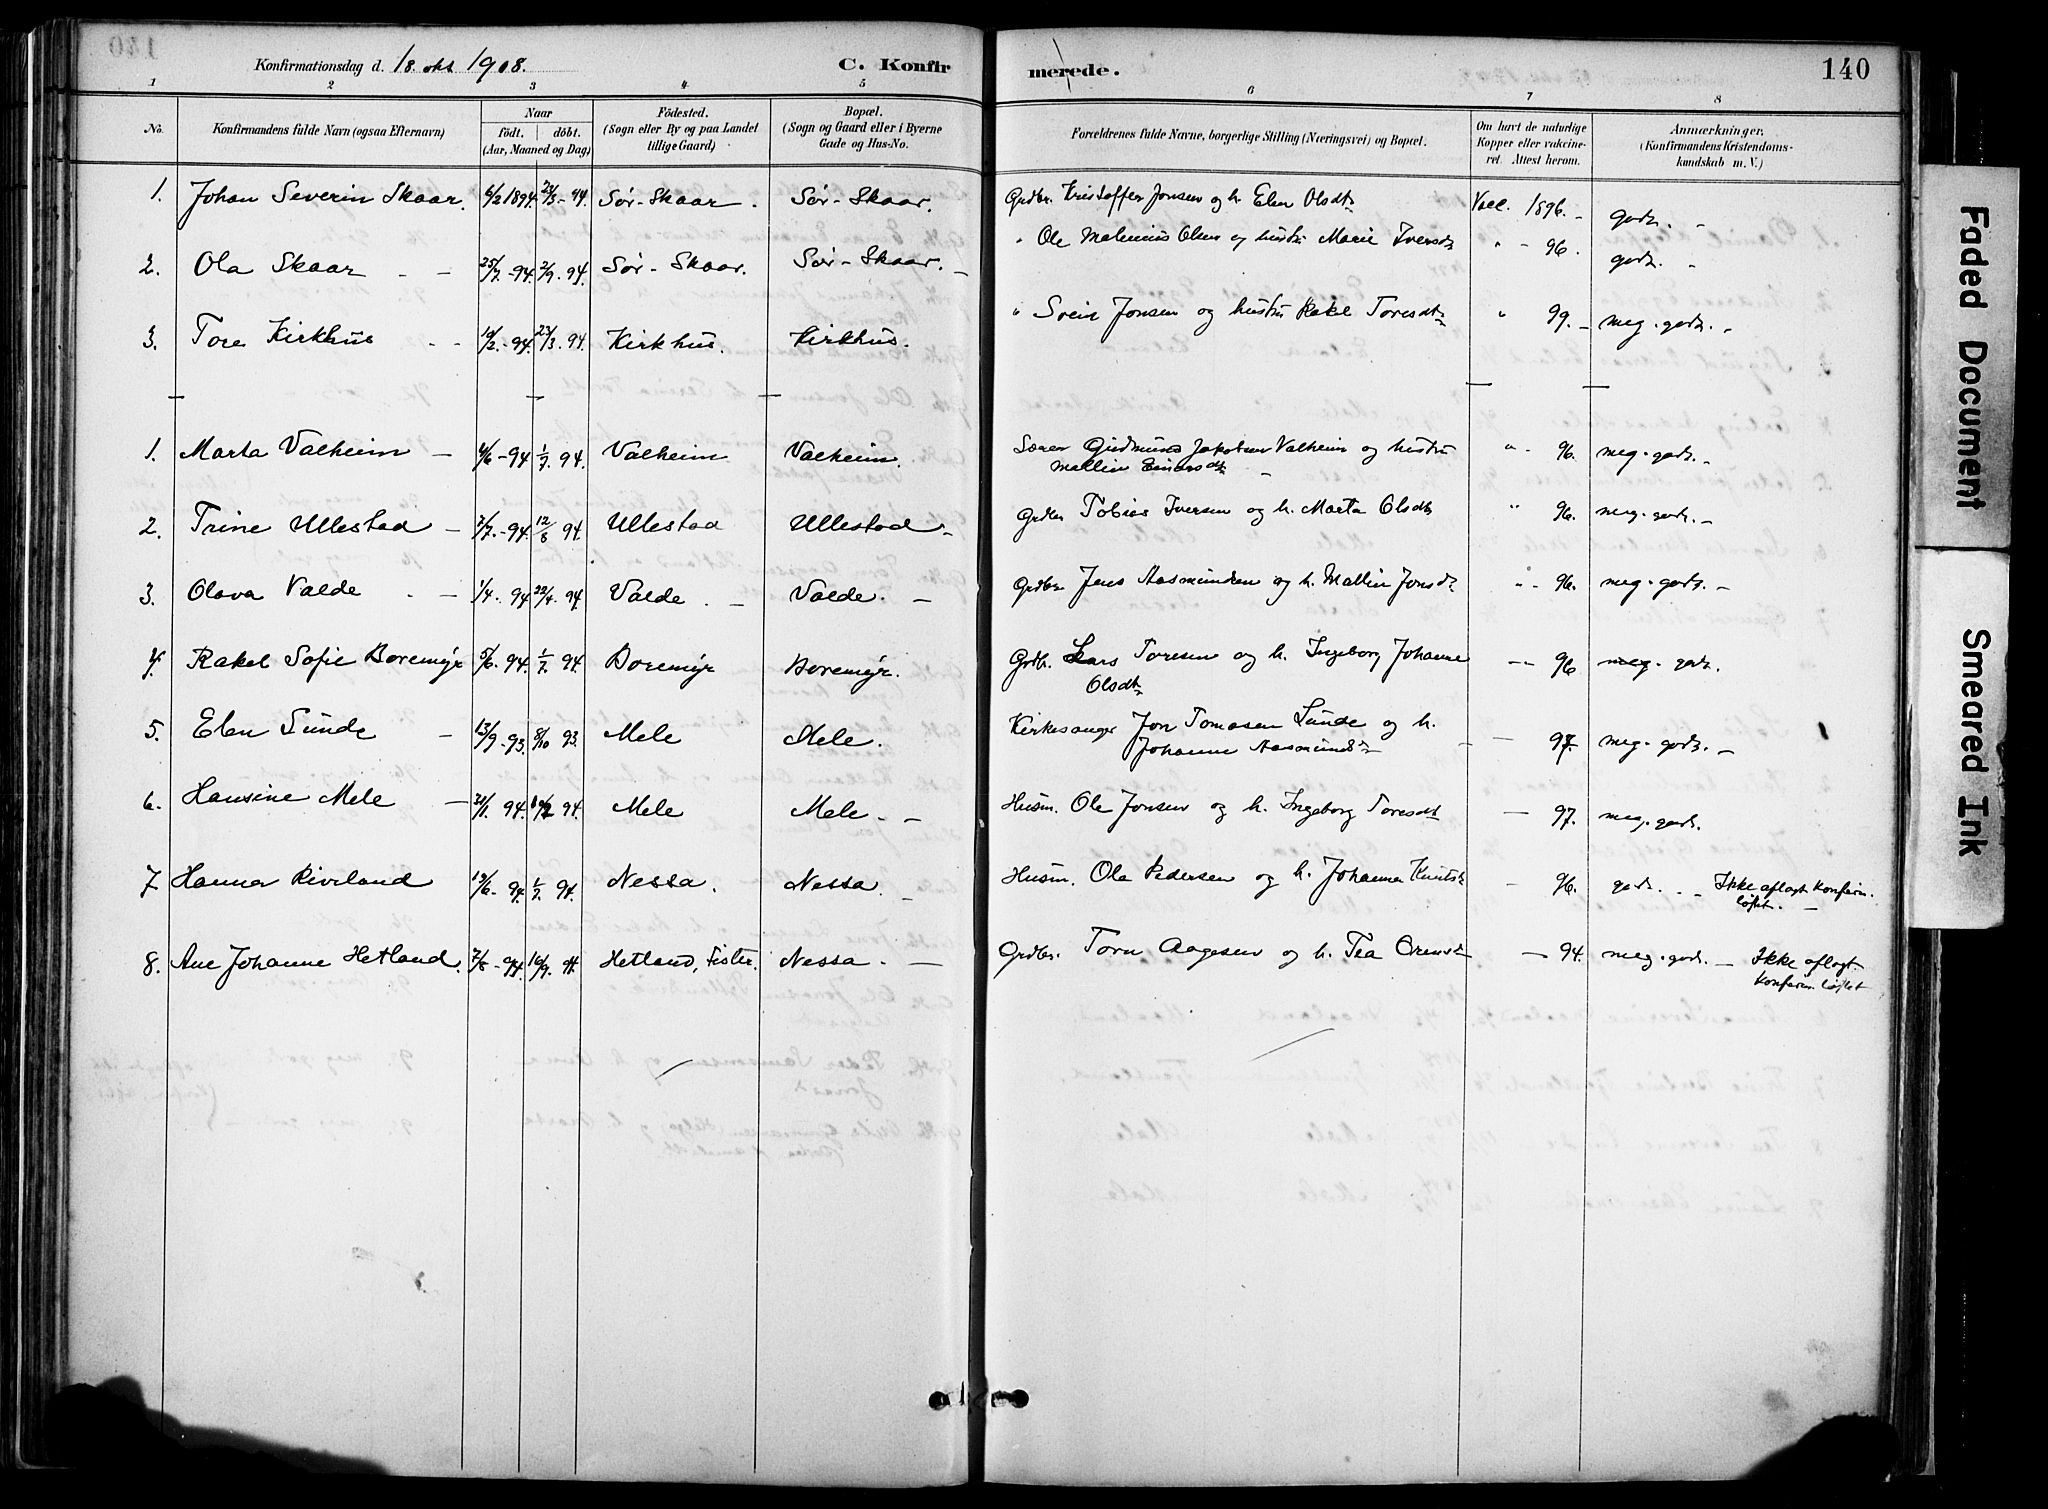 Konfirmationsdag d. 18. okt 1908. C. Konfirmerede. 140
1 2 3 4 5 6 7 8
No. Konfirmandens fulde Navn (ogsaa Efternavn) Naar født. døbt. (Aar, Maaned og Dag) Fødested. (Sogn eller By og paa Landet tillige Gaard) Bopæl. (Sogn og Gaard eller i Byerne Gade og Hus-No. Forældrenes fulde Navne, borgerlige Stilling (Næringsvei) og Bopæl. Om havt de naturlige Kopper eller vakcineret. Attest herom. Anmærkninger. (Konfirmandens Kristendomskundskab m. V.)
1. Johan Severin Skaar. 6/2 1894. 23/3 - 94. Sør-Skaar. Sør-Skaar. Grdbr. Kristoffer Jonsen og h. Elen Olsdtr Vacc. 1896. - godt. -
2. Ola Skaar - - 25/7 - 94. 2/9. 94. Sør-Skaar. Sør-Skaar. - " Ole Malenius Olsen og hustru Marie Iversdtr " - 96. godt. -
3. Tore Kirkhus - - 12/2. - 94. 23/3. 94. Kirkhus. Kirkhus. " Svein Jonsen og hustru Rakel Toresdtr " 99. - meg. godt. -
1. Marta Valheim - 4/6 - 94 1/7. 94. Valheim Valheim. Gudmund Jakobsen Valheim og hustru " - 96. meg. godt. -
Mallin Einarsdtr -
2. Trine Ullestad - 2/7. - 94. 12/8 94. Ullestad Ullestad - Grdbr Tobias Iversen og h. Marta Olsdtr " 96. meg. godt. -
3. Olava Valde - - 1/4. 94 22/4. 94 Valde. - Valde. - Grdbr Jens Aasmundsen og h. Mallin Jonsdtr " - 96. meg. godt. -
4. Rakel Sofie Boremyr 5/6. 94. 1/7. 94. Boremyr Boremyr. Grdbr. Lars Toresen og h. Ingeborg Johanne - - 96 meg. godt.
Olsdtr
5. Elen Sunde - 13/9 - 93. 8/10 93. Mele Mele. Kirkesanger Jon Tomasen Sunde og h. - 97. meg. godt. -
Johanne Aasmundsdtr -
6. Hansine Mele - 21/1. 94. 94. Mele Mele. - Husm. Ole Jonsen og h. Ingeborg Toresdtr - 97. meg. godt.
7 Hanna Riveland 19/6 - 94. 1/7. 94. Nessa. Nessa. - Husm. Ole Pedersen og h. Johanna Knutsdtr - 96. godt. - Ikke aflagt Konfirm.
løftet. -
8. Ane Johanne Hetland. 7/8 - 94. 16/9. 94. Hetland, Fister. Nessa. - Grdbr. Torn Aagesen og h. Tea - 94. meg. godt. - Ikke aflagt.
Konfirm. løftet
Faded Document
Smeared Ink